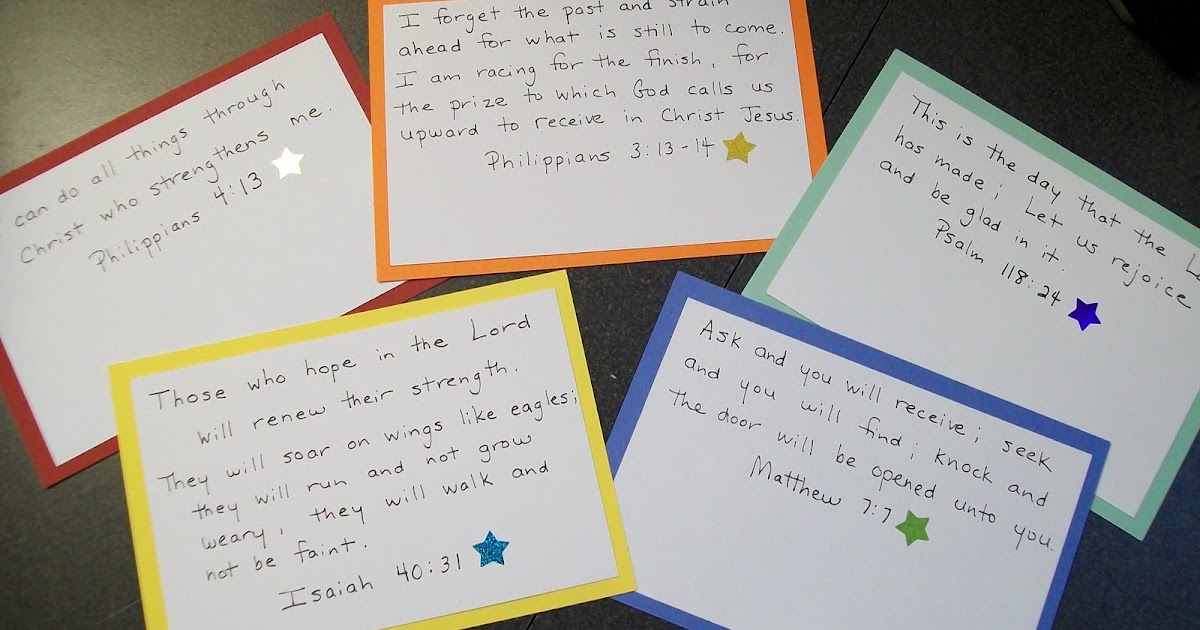 can do all things through
Christ who strengthens me.
Philippians 4:13
I forget the past and strain
ahead for what is still to come.
I am racing for the finish, for
the prize to which God calls us
upward to receive in Christ Jesus.
Philippians 3:13-14
This is the day that the
has made; Let us rejoice
and be glad in it.
Psalm 118:24
Those who hope in the Lord
will renew their strength.
They will soar on wings like eagles;
they will run and not grow
weary, they will walk and
not be faint.
Isaiah 40:31
Ask and you will receive; seek
and you will find; knock and
the door will be opened unto you.
Matthew 7:7